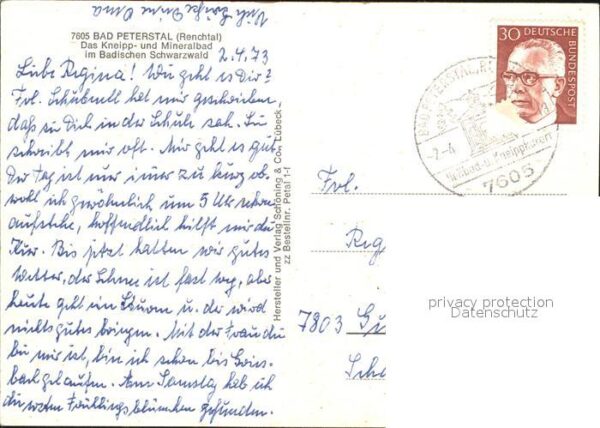 Viele Grüße Deine Oma
7605 BAD PETERSTAL (Renchtal)
Das Kneipp- und Mineralbad
im Badischen Schwarzwald
2.4.73
Liebe Regina! Wie geht es Dir?
Frl. hat mir geschrieben,
daß sie Dich in der Schule sah. Sie
schreibt mir oft. Mir geht es gut.
Der Tag ist nur immer zu kurz ob-
wohl ich gewöhnlich um 5 Uhr schon
aufstehe, hoffendlich hilft mir die
Kur. Bis jetzt hatten wir gutes
Wetter, der Schnee ist fast weg, aber
heute geht ein Sturm u. der wird
nichts gutes bringen. Mit der Frau die
bei mir ist, bin ich schon bis Gries-
bach gelaufen. Am Samstag hab ich
die ersten Frühlingsblümchen gefunden.
Hersteller und Verlag Schöning & Co., Lübeck
zz Bestellnr. Petal 1-f
30 DEUTSCHE BUNDESPOST
BAD PETERSTAL
-2.-4.
7605
Frl.
Reg
7803 Gu
Sch
privacy protection
Datenschutz